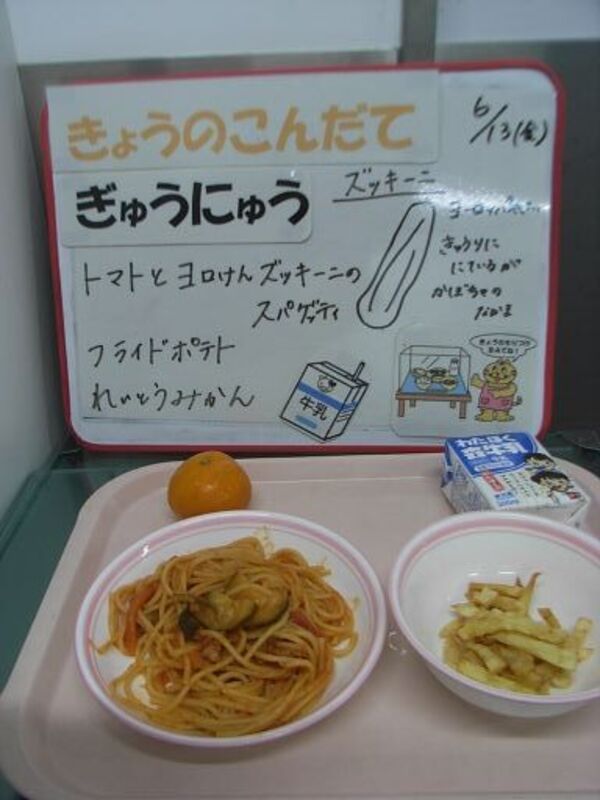 きょうのこんだて
6/13(金)
ぎゅうにゅう
ズッキーニ
トマトとヨロけんズッキーニの
スパゲッティ
フライドポテト
れいとうみかん
きゅうりに
にているが
かぼちゃの
なかま
牛乳
わたぼく
牛乳